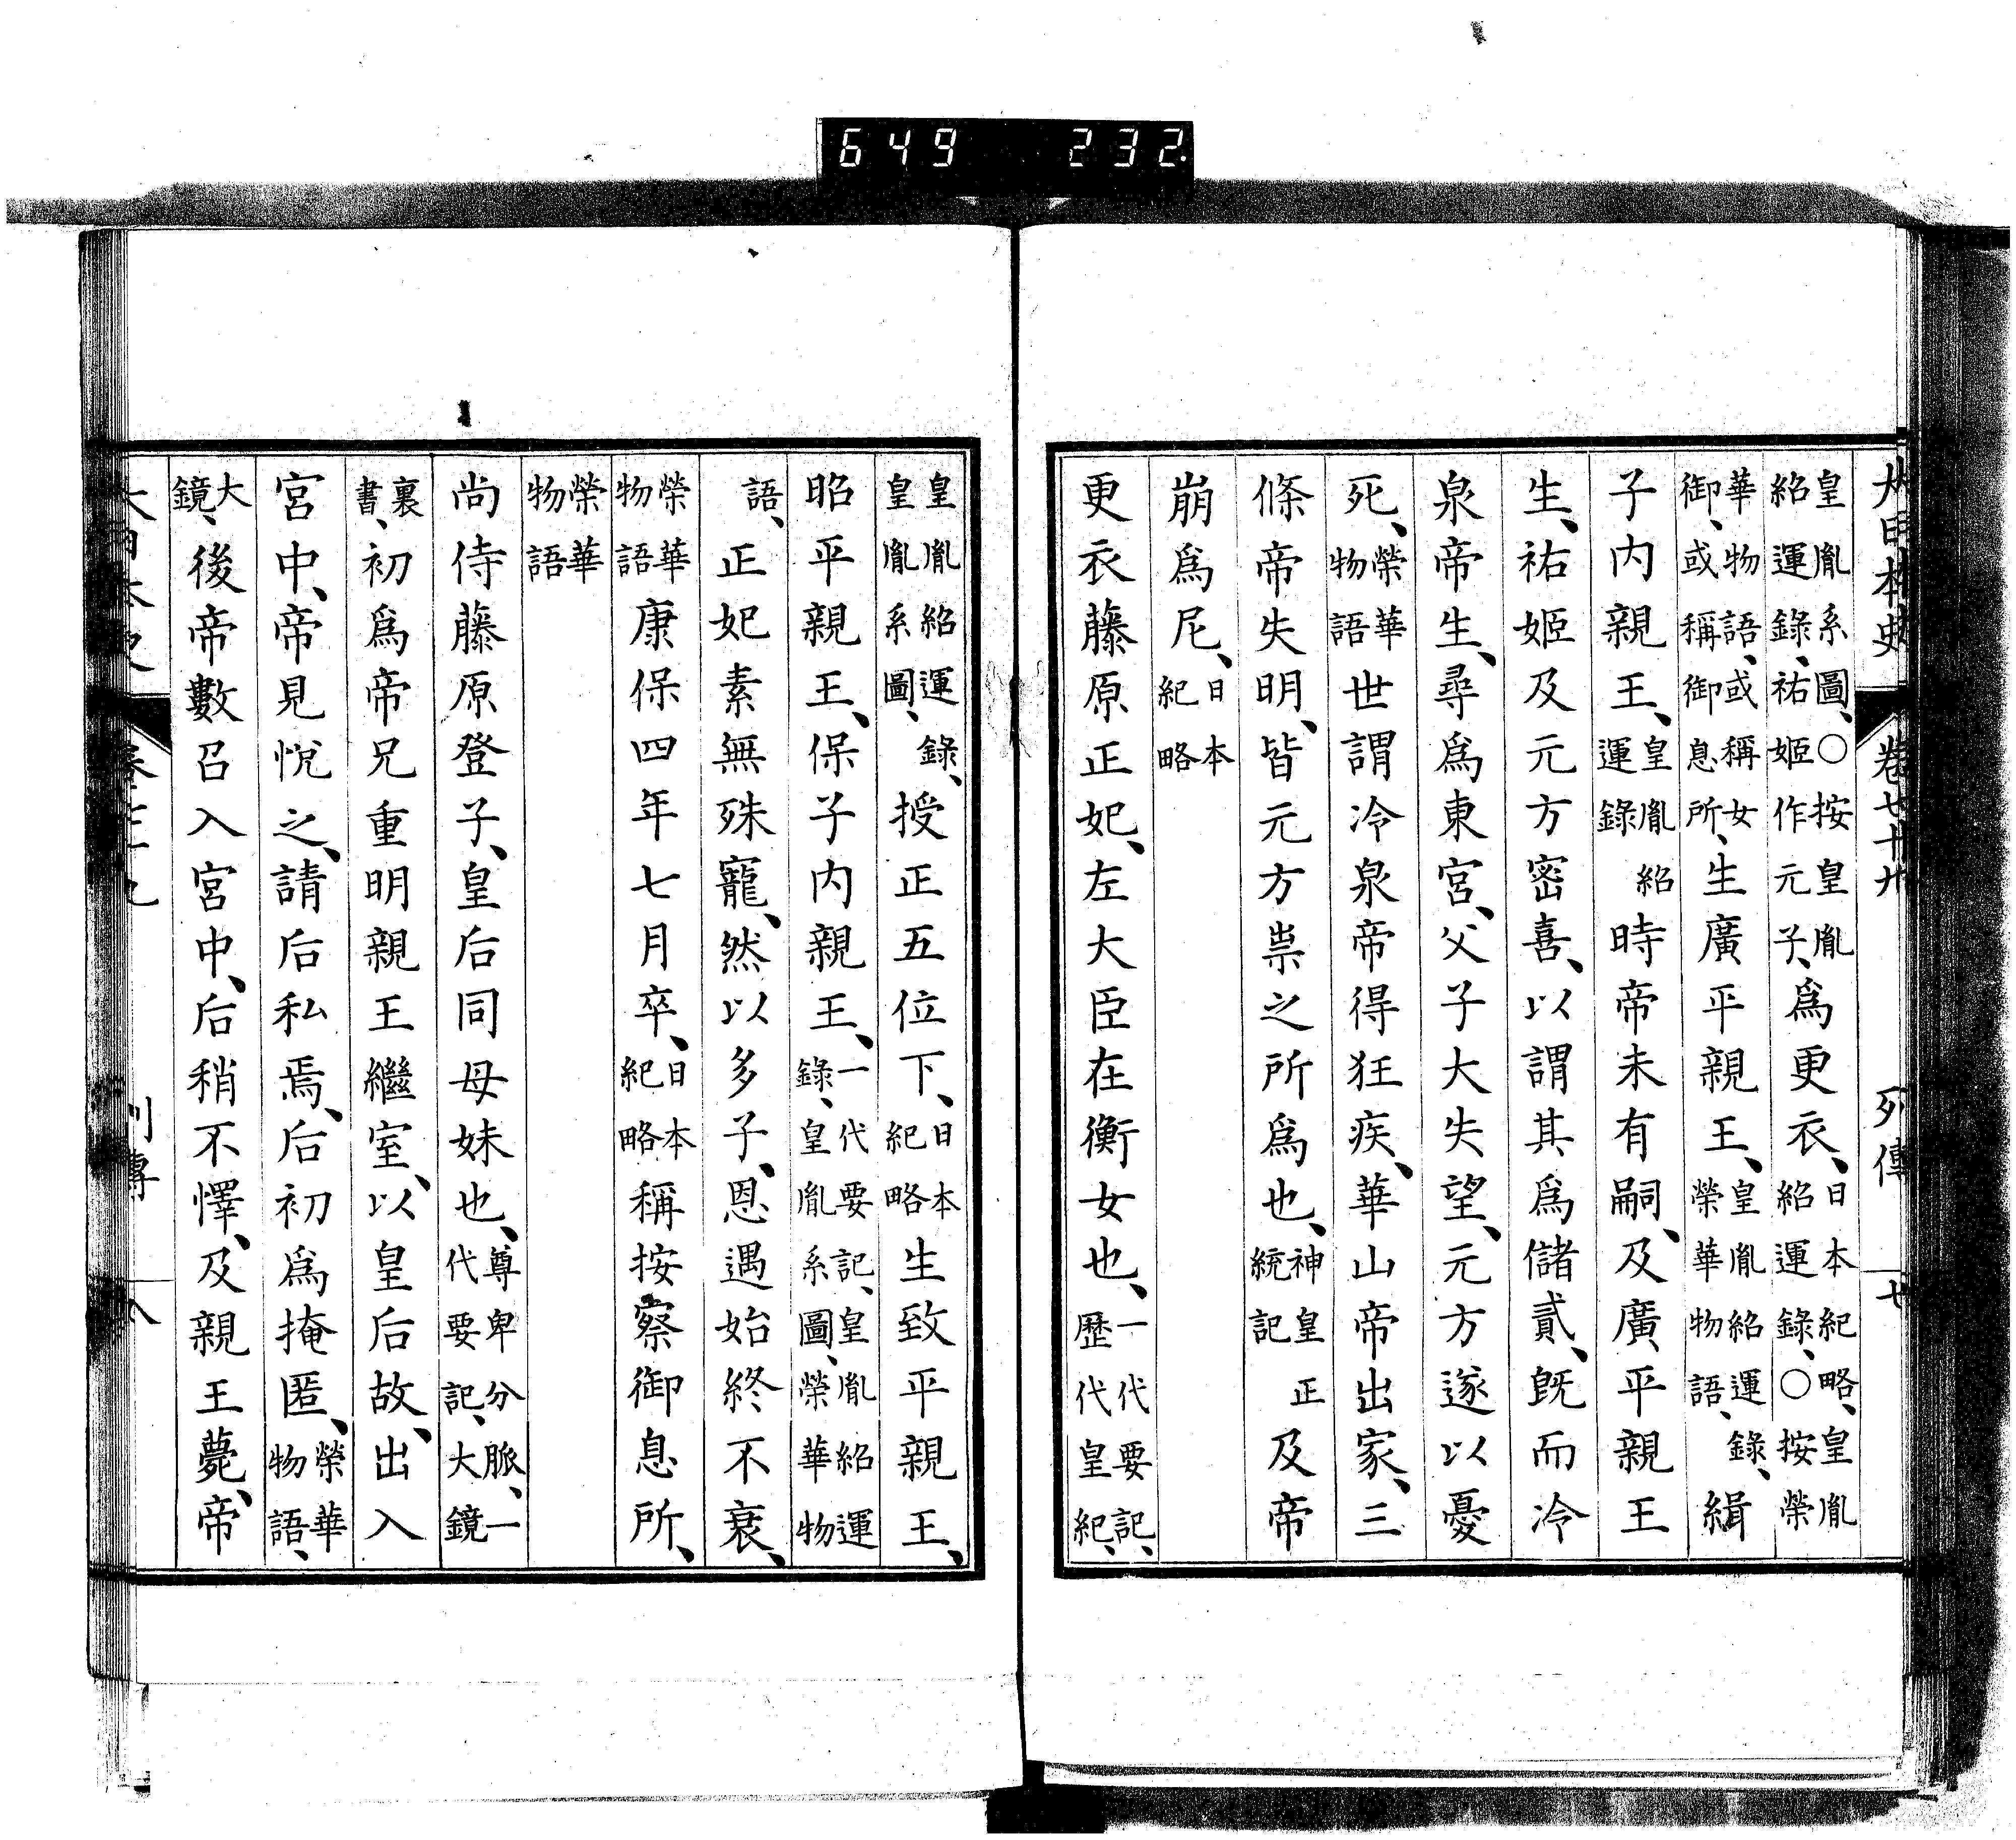 649 232.
大日本史 卷七十九 列傳 七
皇胤系圖、○按皇胤紹運錄、祐姬作元子、爲更衣、日本紀略、皇胤紹運錄、○按榮
華物語、或稱女御、或稱御息所、生廣平親王、皇胤紹運錄、榮華物語、緝
子內親王、皇胤紹運錄時帝未有嗣、及廣平親王
生、祐姬及元方密喜、以謂其爲儲貳、既而冷
泉帝生、尋爲東宮、父子大失望、元方遂以憂
死、榮華物語世謂冷泉帝得狂疾、華山帝出家、三
條帝失明、皆元方祟之所爲也、神皇正統記及帝
崩爲尼、日本紀略
更衣藤原正妃、左大臣在衡女也、一代要記、歷代皇紀、
皇胤紹運錄、皇胤系圖、授正五位下、日本紀略生致平親王、
昭平親王、保子內親王、一代要記、皇胤紹運錄、皇胤系圖、榮華物
語、正妃素無殊寵、然以多子、恩遇始終不衰、
榮華物語康保四年七月卒、日本紀略稱按察御息所、
榮華物語
尚侍藤原登子、皇后同母妹也、尊卑分脈、一代要記、大鏡
裏書、初爲帝兄重明親王繼室、以皇后故、出入
宮中、帝見悅之、請后私焉、后初爲掩匿、榮華物語、
大鏡、後帝數召入宮中、后稍不懌、及親王薨、帝